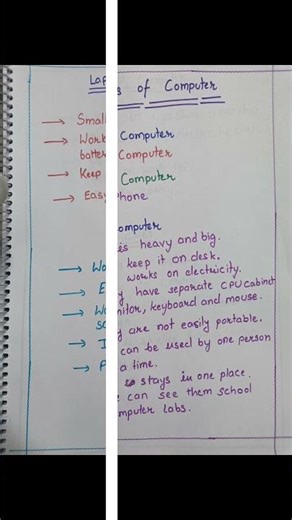 Lap s of Computer
→ Small
→ Work Computer
batter Computer
→ Keep Computer
→ Easy Phone
omputer
is heavy and big.
→ Wo keep it on desk.
works on electricity.
→ E y have separate CPU Cabinet
→ Wo nitor, keyboard and mouse.
y are not easily portable.
→ I can be used by one person
→ P a time.
stays in one place.
can see them school
mputer labs.